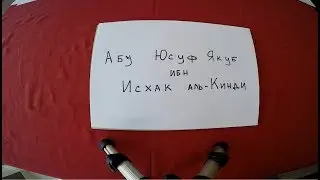 Абу Юсуф Якуб
ибн
Исхак аль-Кинди